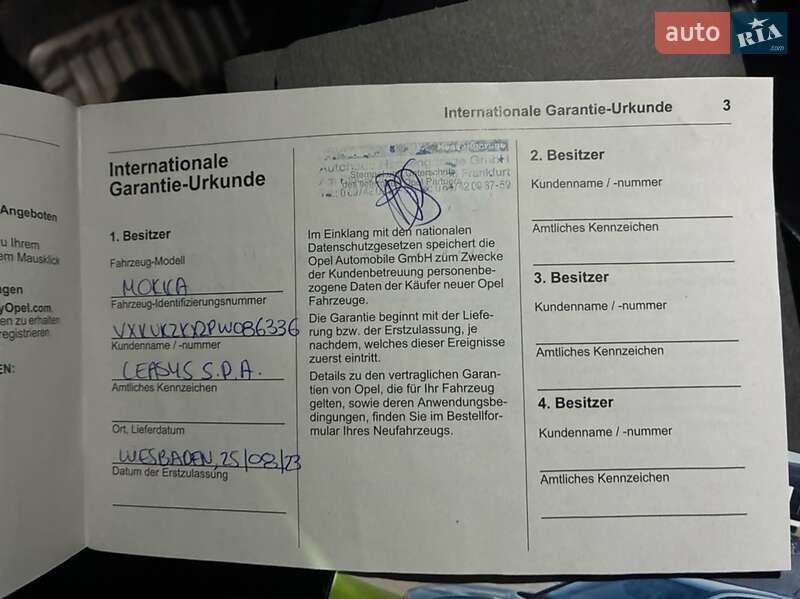 auto RIA .com
Internationale Garantie-Urkunde 3
Angeboten
zu Ihrem
em Mausklick
ngen
yOpel.com,
en zu erhalten
registrieren.
EN:
Internationale
Garantie-Urkunde
1. Besitzer
Fahrzeug-Modell
MOKKA
Fahrzeug-Identifizierungsnummer
Kundenname / -nummer
LEASYS S.P.A.
Amtliches Kennzeichen
Ort, Lieferdatum
WIESBADEN, 25/08/23
Datum der Erstzulassung
Stempel und Unterschrift
Frankfurt
Im Einklang mit den nationalen
Datenschutzgesetzen speichert die
Opel Automobile GmbH zum Zwecke
der Kundenbetreuung personenbe-
zogene Daten der Käufer neuer Opel
Fahrzeuge.
Die Garantie beginnt mit der Liefe-
rung bzw. der Erstzulassung, je
nachdem, welches dieser Ereignisse
zuerst eintritt.
Details zu den vertraglichen Garan-
tien von Opel, die für Ihr Fahrzeug
gelten, sowie deren Anwendungsbe-
dingungen, finden Sie im Bestellfor-
mular Ihres Neufahrzeugs.
2. Besitzer
Kundenname / -nummer
Amtliches Kennzeichen
3. Besitzer
Kundenname / -nummer
Amtliches Kennzeichen
4. Besitzer
Kundenname / -nummer
Amtliches Kennzeichen